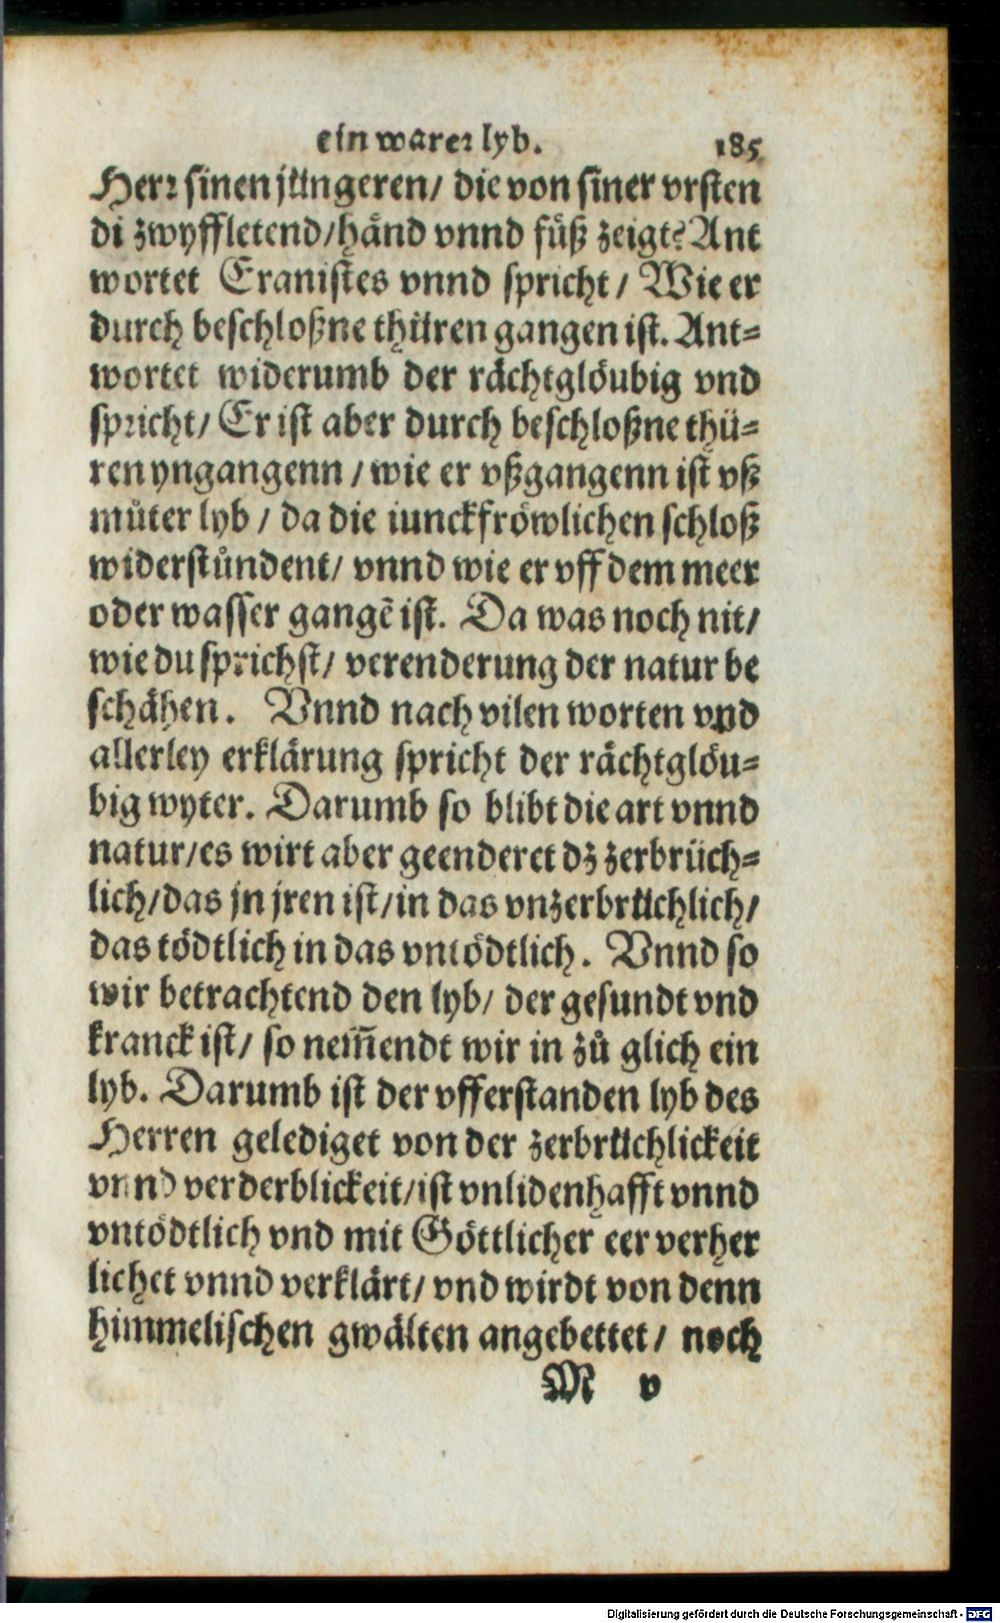 ein warer lyb. 185
Herr sinen jüngeren/ die von siner vrsten
di zwyffletend/händ vnnd füß zeigt? Ant
wortet Eranistes vnnd spricht/ Wie er
durch beschloßne thüren gangen ist. Ant=
wortet widerumb der rächtglöubig vnd
spricht/ Er ist aber durch beschloßne thü=
ren yngangenn/ wie er vßgangenn ist vß
můter lyb/ da die iunckfröwlichen schloß
widerstůndent/ vnnd wie er vff dem meer
oder wasser gangẽ ist. Da was noch nit/
wie du sprichst/ verenderung der natur be
schähen. Vnnd nach vilen worten vnd
allerley erklärung spricht der rächtglöu=
big wyter. Darumb so blibt die art vnnd
natur/es wirt aber geenderet dz zerbrüch=
lich/das jn jren ist/in das vnzerbrüchlich/
das tödtlich in das vntödtlich. Vnnd so
wir betrachtend den lyb/ der gesundt vnd
kranck ist/ so nem̃endt wir in zů glich ein
lyb. Darumb ist der vfferstanden lyb des
Herren gelediget von der zerbrüchlickeit
vnnd verderblickeit/ist vnlidenhafft vnnd
vntödtlich vnd mit Göttlicher eer verher
lichet vnnd verklärt/ vnd wirdt von denn
himmelischen gwälten angebettet/ noch
M v
Digitalisierung gefördert durch die Deutsche Forschungsgemeinschaft - DFG